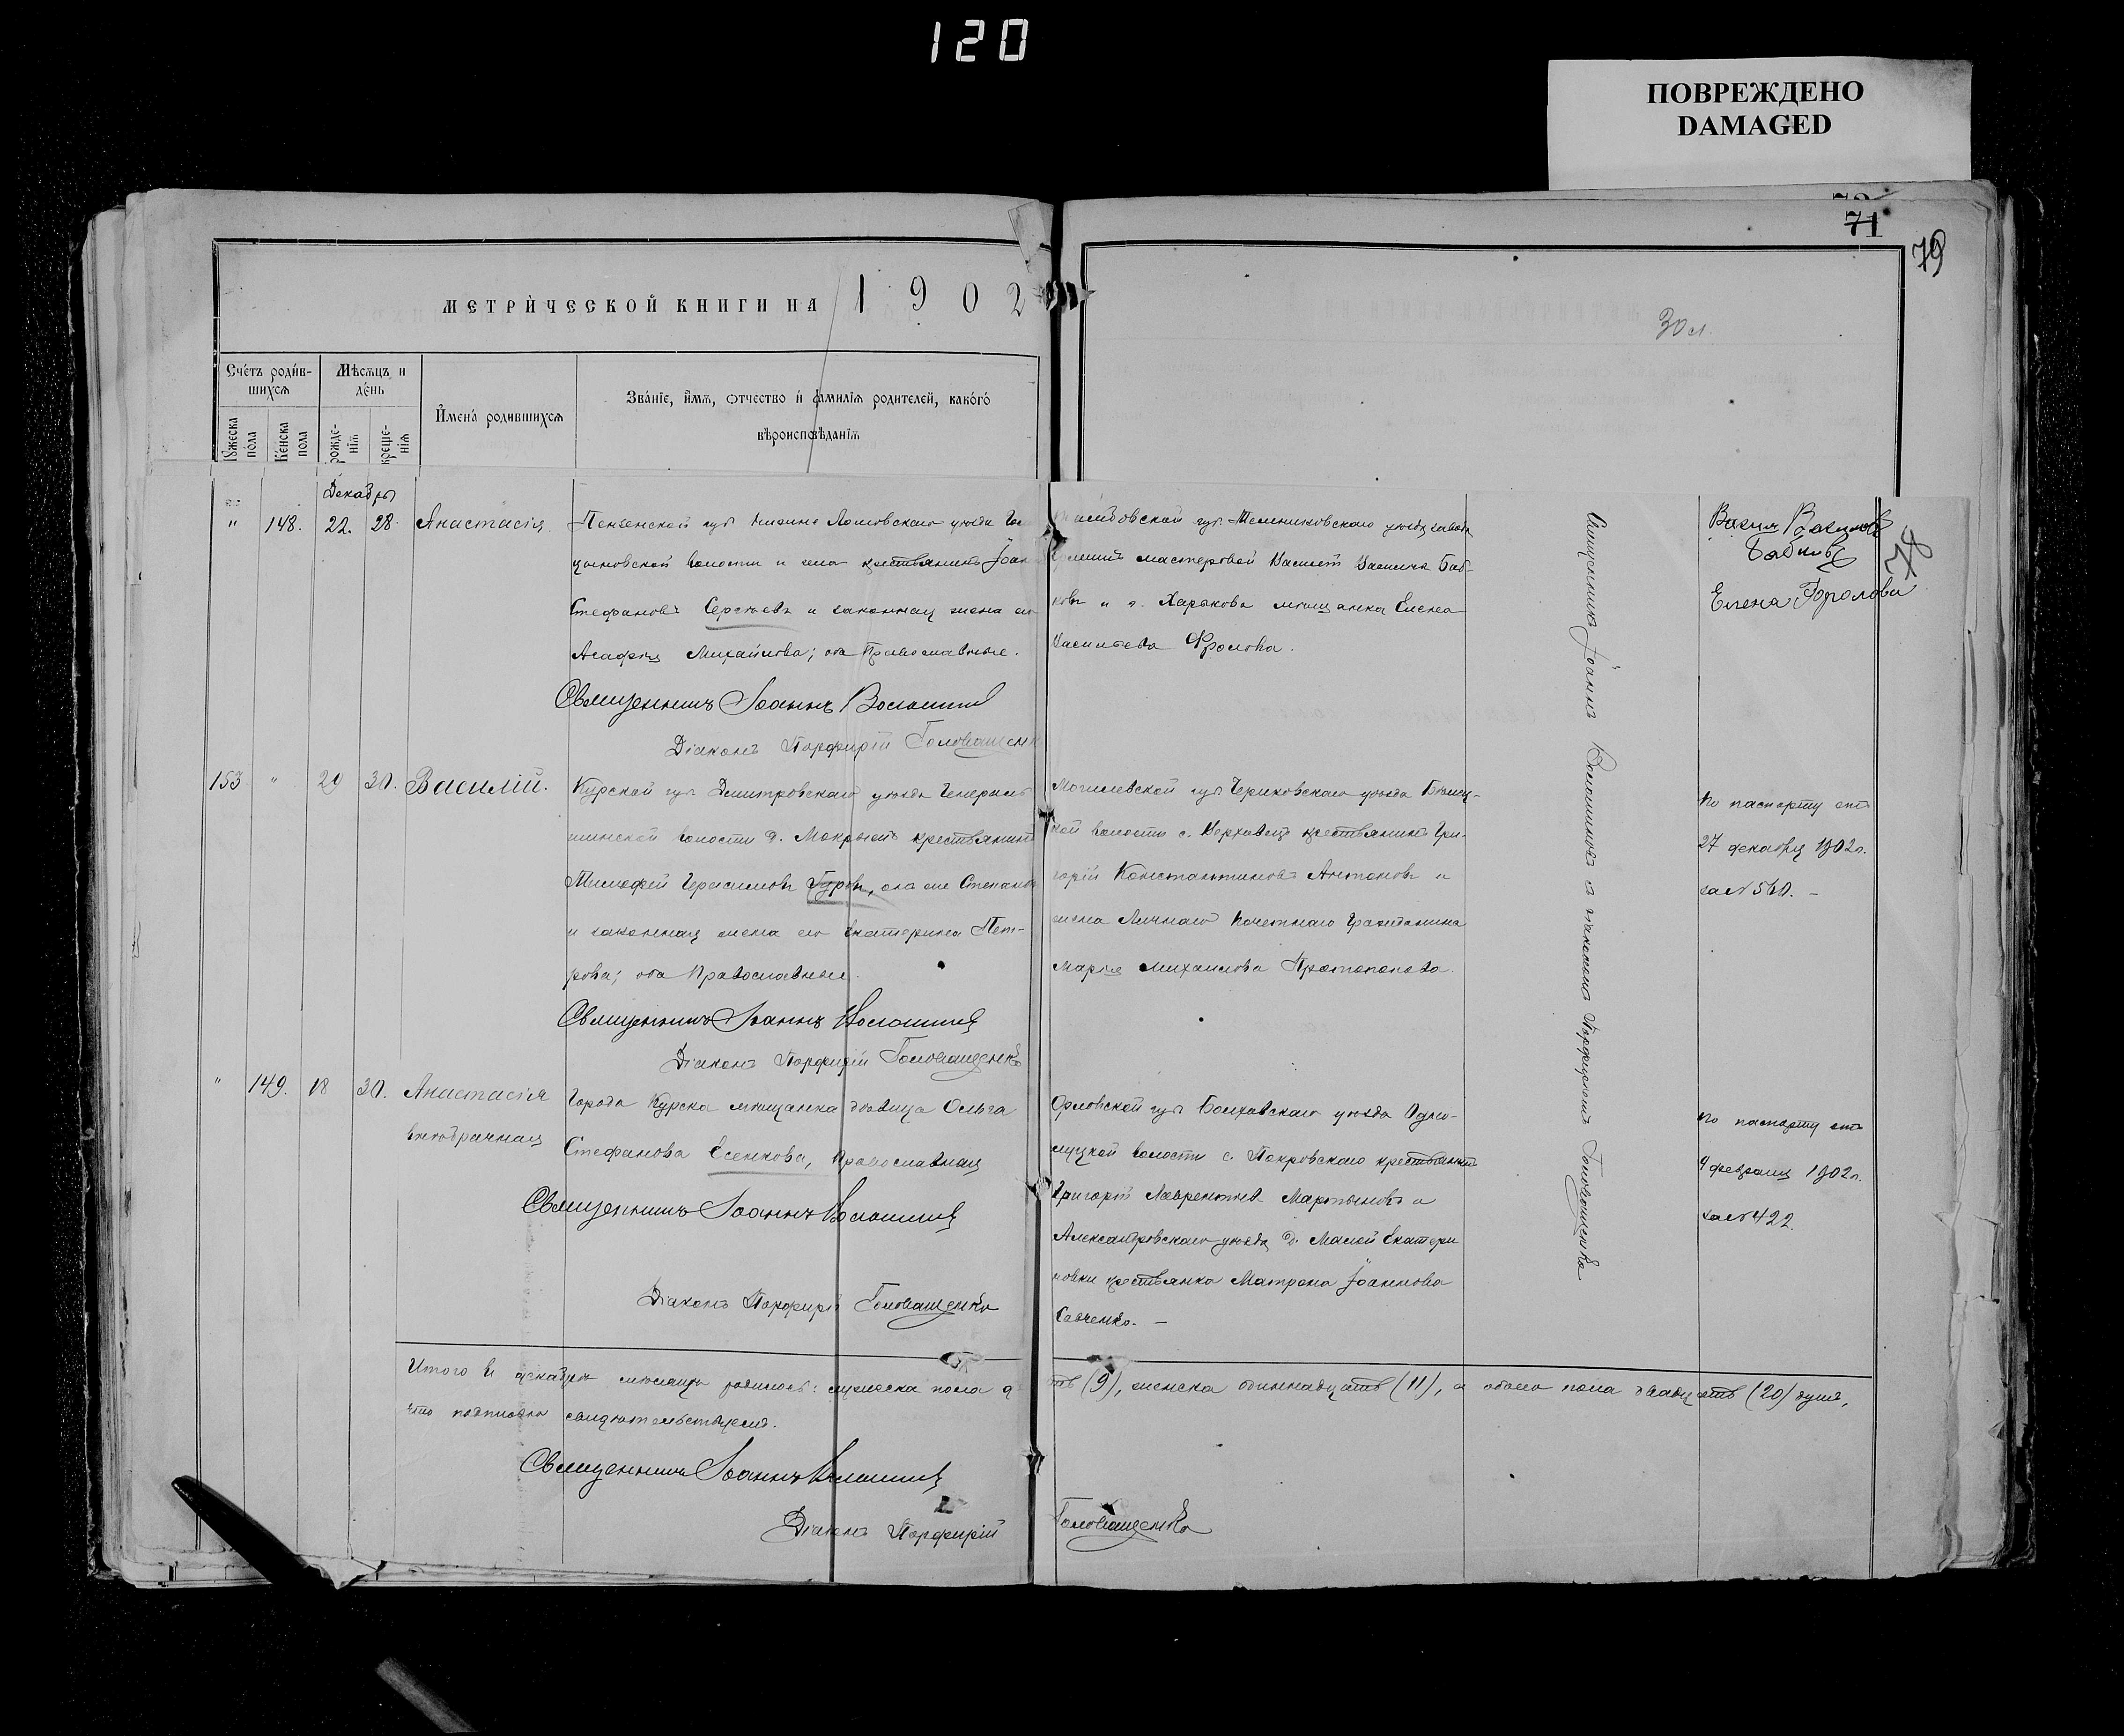 120
ПОВРЕЖДЕНО
DAMAGED
71
79
30 л.
МЕТРИЧЕСКОЙ КНИГИ НА 1902
Счетъ родившихся
Мѣсяцъ и день
Имена родившихся
Званіе, имя, отчество и фамилія родителей, какого
вѣроисповѣданія
Мужеска пола
Женска пола
рожденія
крещенія
Декабрь
" 148. 22. 28. Анастасія
Пензенской губ. Нижне Ломовскаго уѣзда
волости и села крестьянинъ Іоан
Стефановъ Сергѣевъ и законная жена его
Агафія Михайлова; оба Православные.
Священникъ Іоаннъ Волошинъ
Діаконъ Порфирій Головащенк
Тамбовской губ. Темниковскаго уѣзда завода
мастеровой Василій Васильев Баб-
ковъ и г. Харькова мѣщанка Елена
Васильева Фролова.
Елена Фролова
78
153 " 29 30. Василій.
Курской губ. Дмитровскаго уѣзда Генераль
шинской волости д. Мокрыхъ крестьянинъ
Тимофей Герасимовъ Гуровъ, Степановъ
и законная жена его Екатерина Пет-
рова; оба Православные.
Священникъ Іоаннъ Волошинъ
Діаконъ Порфирій Головащенко
Могилевской губ. Чериковскаго уѣзда
кой волости с. крестьянинъ Гри-
горій Константиновъ Антоновъ и
жена Личнаго Почетнаго Гражданина
Марія Михаилова Протопопова.
По паспорту отъ
27 декабря 1902 г.
за № 560. –
" 149. 18 30. Анастасія
внѣбрачная
Города Курска мѣщанка дѣвица Ольга
Стефанова Есенкова, Православная
Священникъ Іоаннъ Волошинъ
Діаконъ Порфирій Головащенко
Орловской губ. Болховскаго уѣзда Одно-
луцкой волости с. Покровскаго крестьянинъ
Григорій Лаврентьев Мартыновъ и
Александровскаго уѣзда д. Малой Екатери
новки крестьянка Матрона Іоаннова
Савченко. –
По паспорту отъ
9 февраля 1902 г.
за № 422.
Священникъ Іоаннъ Волошиновъ съ діакономъ Порфиріемъ Головащенко
Итого въ декабрѣ мѣсяцѣ родилось: мужеска пола девять (9), женска одиннадцать (11), а обоего пола двадцать (20) душъ,
что подписомъ свидѣтельствуемъ.
Священникъ Іоаннъ Волошинъ
Діаконъ Порфирій Головащенко